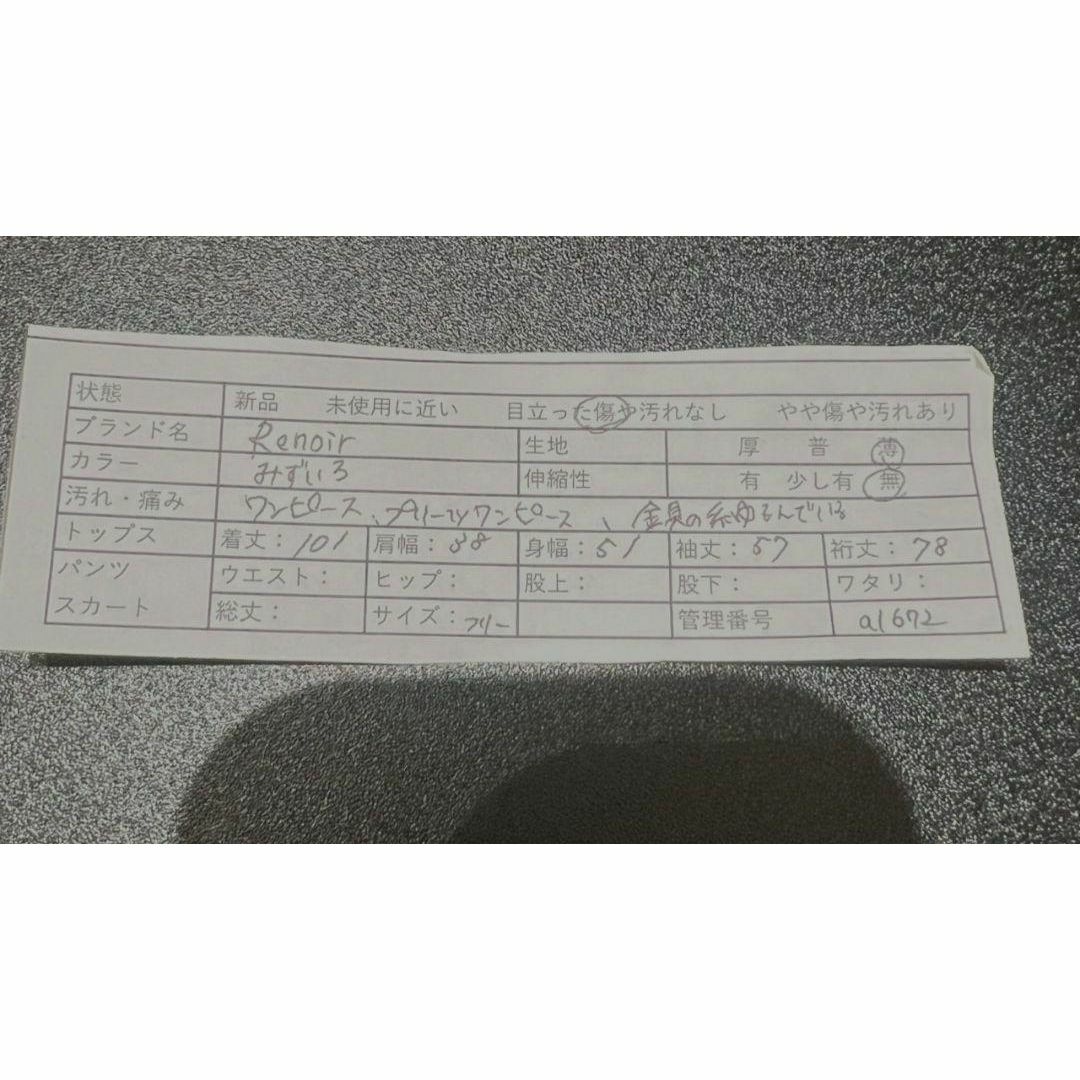 状態 新品 未使用に近い 目立った傷や汚れなし やや傷や汚れあり
ブランド名 Renoir 生地 厚 普 薄
カラー みずいろ 伸縮性 有 少し有 無
汚れ・痛み ワンピース、プリーツワンピース、金具の糸ゆるんでいる
トップス 着丈:101 肩幅:38 身幅:51 袖丈:57 裄丈:78
パンツ ウエスト: ヒップ: 股上: 股下: ワタリ:
スカート 総丈: サイズ:フリー 管理番号 a1672